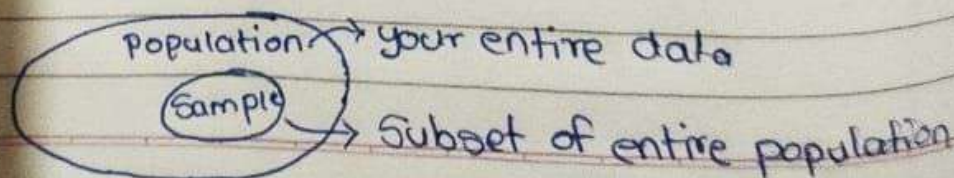 population → your entire data
Sample → Subset of entire population